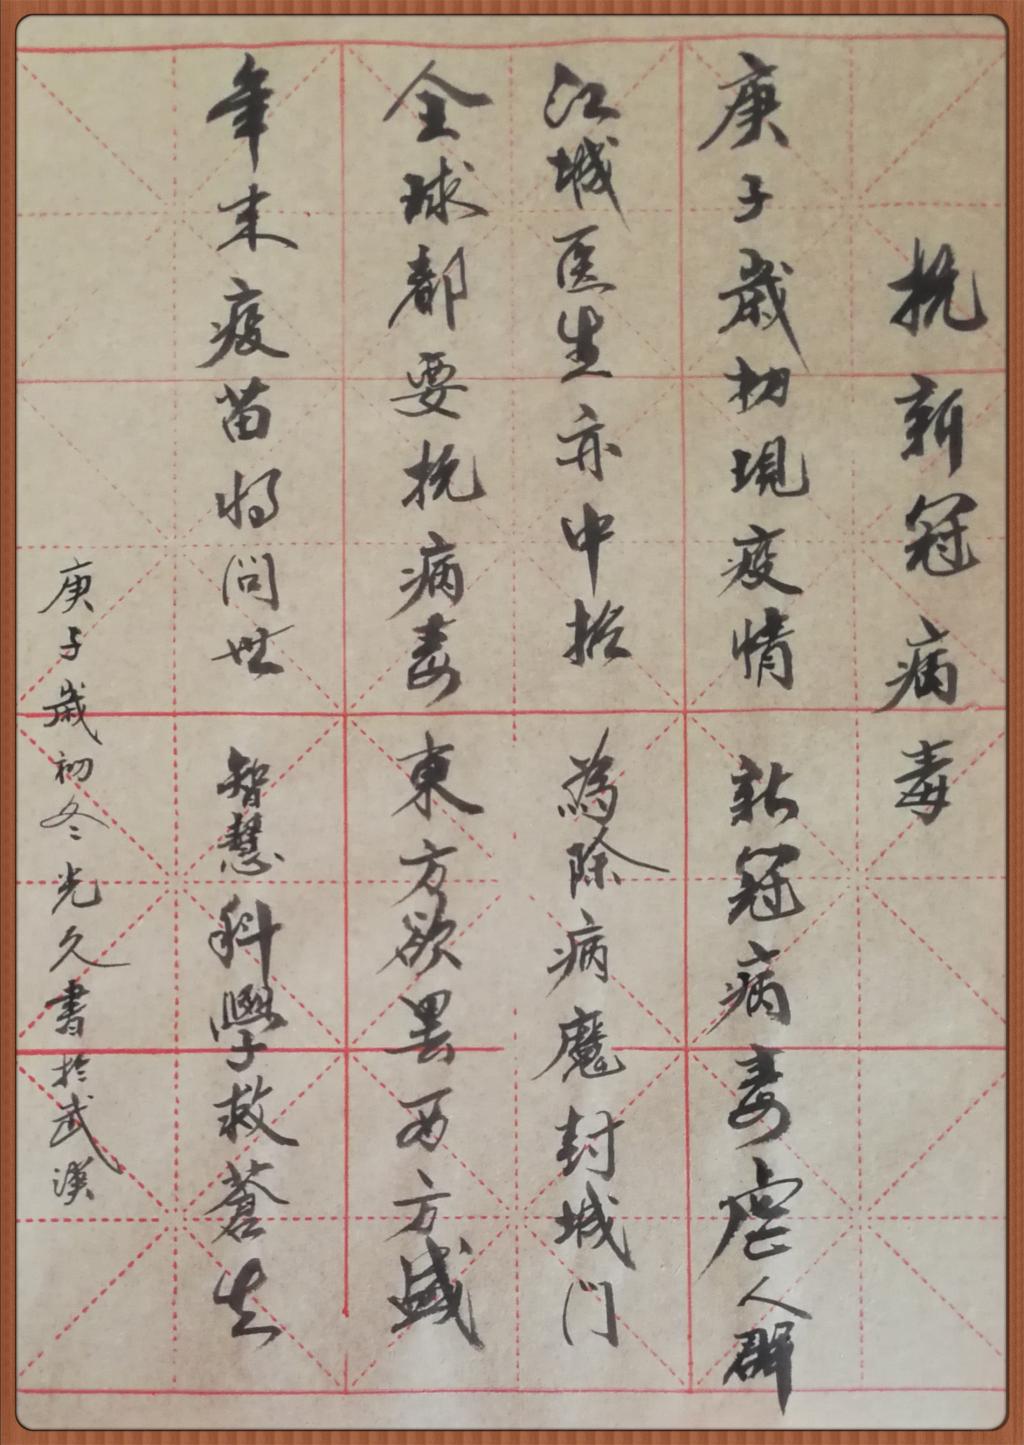 抗新冠病毒
庚子歲初現疫情 新冠病毒虐人群
江城医生亦中招 為除病魔封城门
全球都要抗病毒 東方欲罢西方盛
年末疫苗将问世 智慧科學救蒼生
庚子歲初冬光久書於武漢